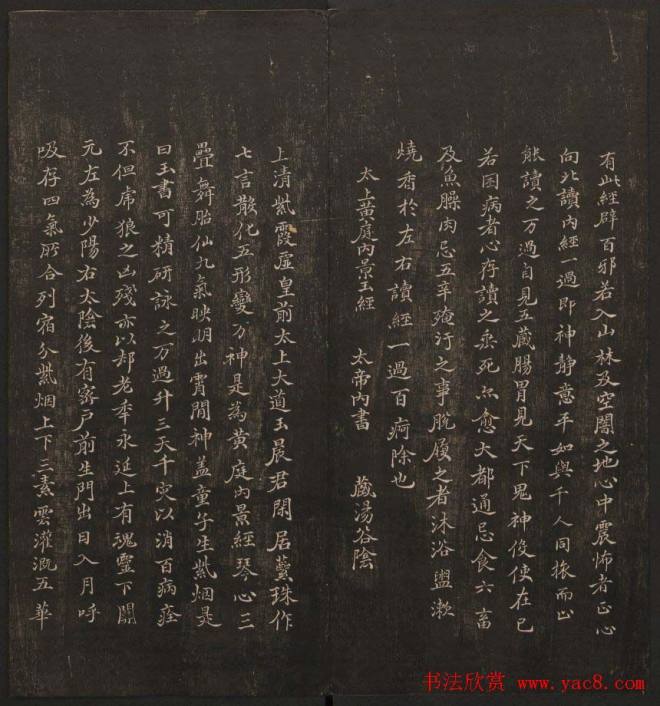 有此經辟百邪若入山林及空闇之地心中震怖者正心
向北讀內經一過即神靜意平如與千人同旅而止
能讀之万過自見五藏腸胃見天下鬼神役使在已
若困病者心存讀之垂死亦愈大都通忌食六畜
及魚臊肉忌五辛殗汙之事脫履之者沐浴盥漱
燒香於左右讀經一過百痾除也
太上黃庭內景玉經 太帝內書 藏湯谷陰
上清紫霞虛皇前太上大道玉晨君閒居蘂珠作
七言散化五形變万神是為黃庭內景經琴心三
疊舞胎仙九氣映明出霄閒神蓋童子生紫烟是
曰玉書可精研詠之万過升三天千灾以消百病痊
不但虎狼之凶殘亦以却老年永延上有魂靈下關
元左為少陽右太陰後有密戶前生門出日入月呼
吸存四氣所合列宿分紫烟上下三素雲灌溉五華
书法欣赏 www.yac8.com